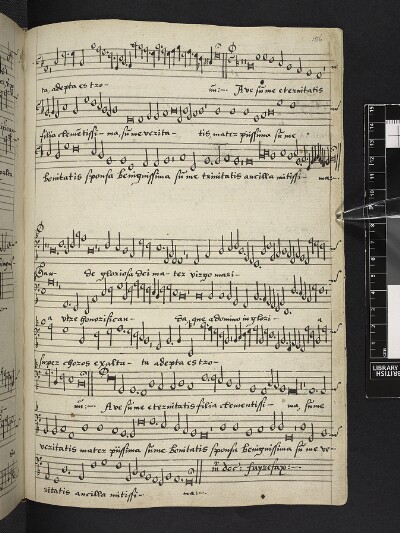 156
ta, adepta es tro- nū:— Ave sūme eternitatis
filia clemētissi- ma, sūme verita- tis mater piissima sūme
bonitatis sponsa benignissima sūme trinitatis ancilla mitissi- ma:—
Gau- de gloriosa dei ma- ter virgo mari-
a vere honorifican- da, que a domino in glori- a
super choros exalta- ta adepta es tro-
nū:— Ave sūme eternitatis filia clementissi- ma, sūme
veritatis mater piissima sūme bonitatis sponsa benignissima sūme tri-
nitatis ancilla mitissi- ma:—
LIBRARY
BRITISH